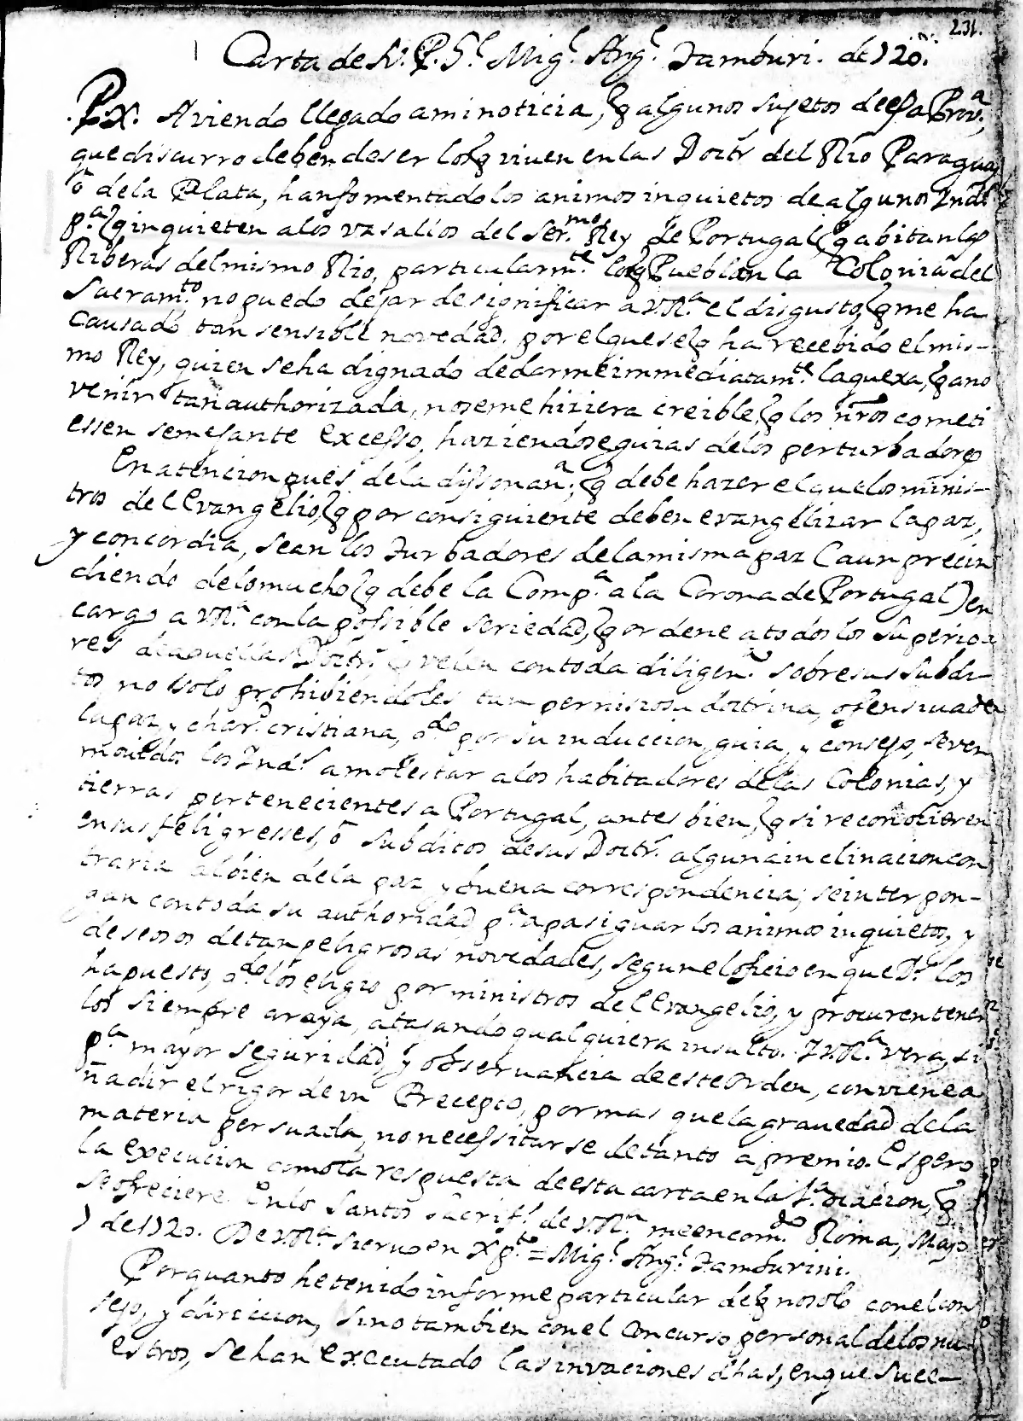 231.
Carta de N. P. Gl. Migl. Angl. Tamburi.n de 720.
P.X. Aviendo llegado a mi noticia, q algunos sujetos de essa Prova,
que discurro deben de ser los q viven en las Doctrs del Rio Paraguay
ò de la Plata, han fomentado los animos inquietos de algunos Inds
pa q inquieten a los vasallos del Sermo Rey de Portugal q abitan las
Riberas del mismo Rio, particularmte los q Pueblan la Colonia del
Sacramto no puedo dejar de significar a VRa el disgusto, q me ha
causado tan sensible novedad, por el que se q ha recebido el mis-
mo Rey, quien se ha dignado de darme immediatamte la quexa, q a no
venir tan authorizada, no se me hiziera creible, q los nros cometi
essen semejante excesso, haziendose guias de los perturbadores
En atencion pues de la dissonana, q debe hazer el que los minis-
tros del Evangelio, q por consiguiente deben evangelizar la paz,
y concordia, sean los turbadores de la misma paz (aun precin
diendo de lo mucho q debe la Compa a la Corona de Portugal) en
cargo a VRa con la possible seriedad, q ordene a todos los superio
res de aquellas Doctrs q velen con toda diligena sobre sus subdi-
tos no solo prohibiendoles tan perniziosa doctrina, ofensiva de
la paz, y chard cristiana, qdo por su induccion, guia, y consejo, se ven
movidos los Inds a molestar a los habitadores de las Colonias, y
tierras pertenecientes a Portugal, antes bien, q si reconocieren
en sus feligresses, ò subditos de sus Doctrs alguna inclinacion con
traria al bien de la paz y buena correspondencia, se interpon-
gan con toda su authoridad pa apasiguar los animos inquietos, y
deseosos de tan peligrosas novedades, segun el oficio en que Ds los
ha puesto, qdo los eligio por ministros del Evangelio, y procuren tener
los siempre a raya, atajando qualquiera insulto. I VRa vera, si
pa mayor seguridad y observancia de este Orden, conviene a
ñadir el rigor de un Precepto, por mas que la gravedad de la
materia persuada, no necessitarse de tanto apremio. Espero
la execucion como la respuesta de esta carta en la 1a ocacion, q
se ofreciere. En los Santos Sacrifs de VRa me encomdo Roma, Mayo
7 de 1720. De VRa siervo en Xpto = Migl Angl Tamburini.
Por quanto he tenido informe particular de q no solo con el con
sejo, y direccion, sino tambien con el concurso personal de los nu-
estros, se han executado las invaciones dhas, en que suce-